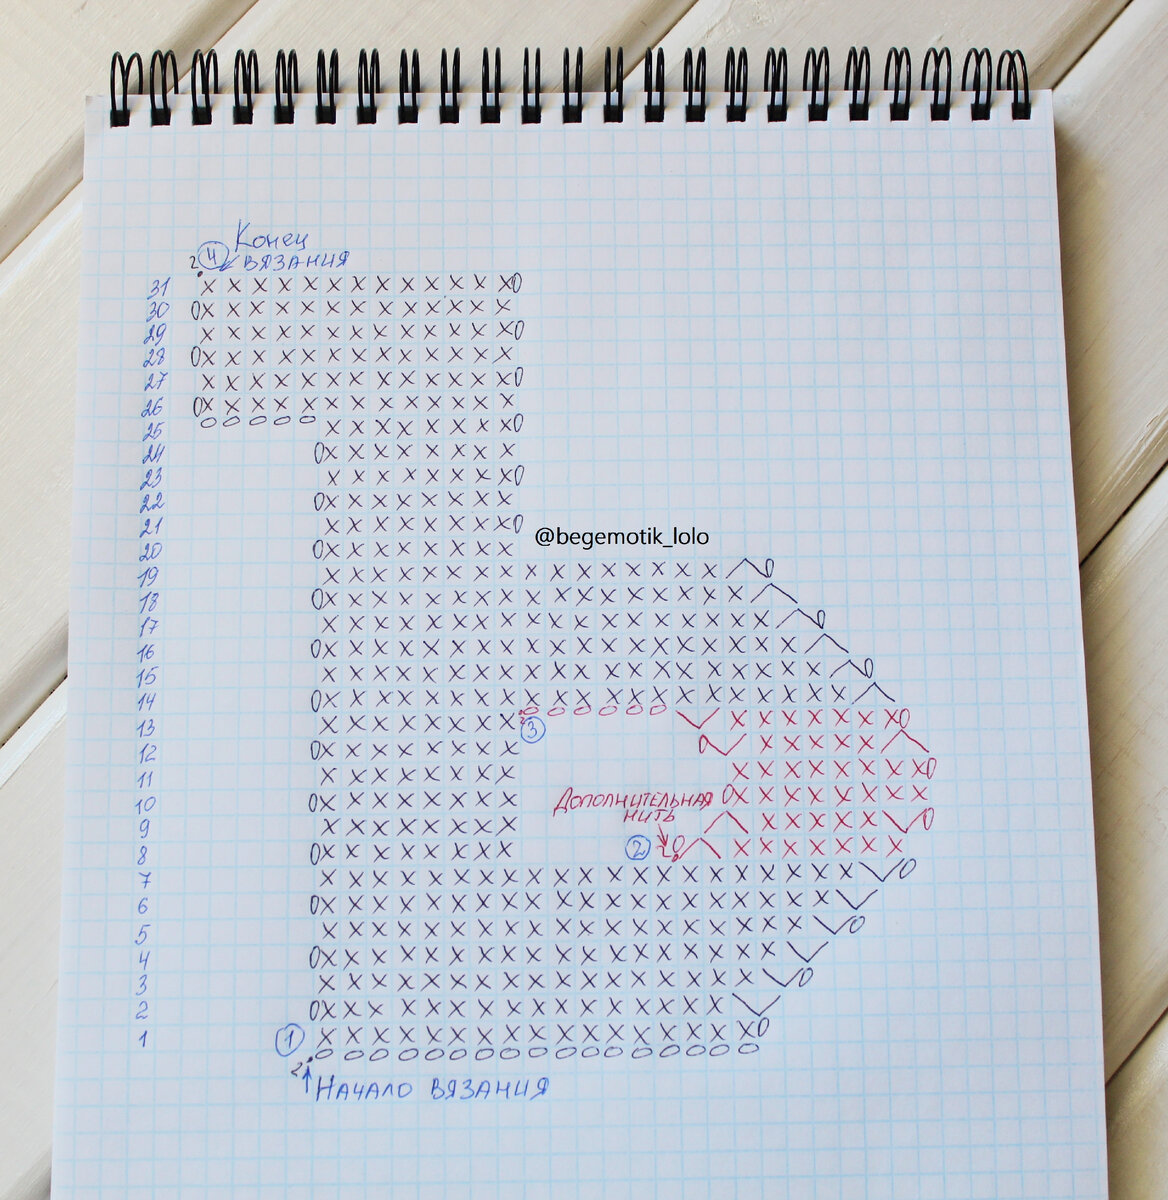 Конец
2 4 вязания
31
30
29
28
27
26
25
24
23
22
21
@begemotik_lolo
20
19
18
17
16
15
14
13
2
3
12
11
10
Дополнительная
нить
9
8
2
2
7
6
5
4
3
2
1
1
2
Начало вязания